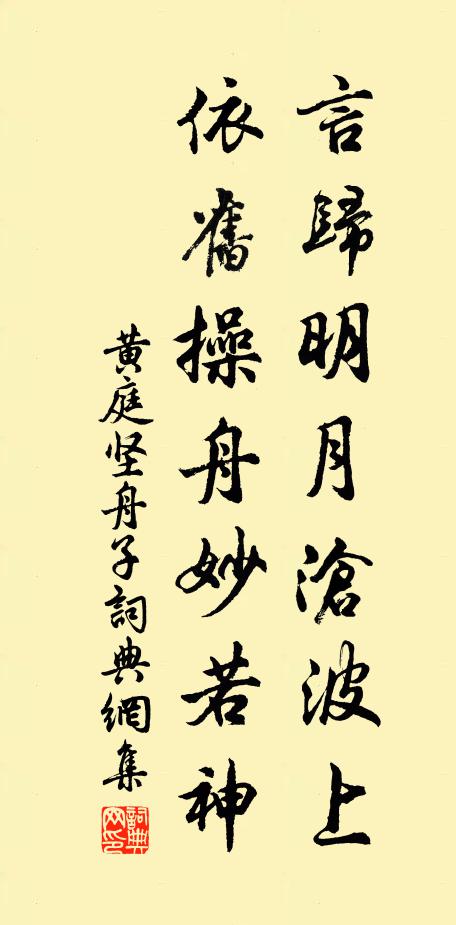 言歸明月滄波上
依舊操舟妙若神
黄庭坚舟子詞典網集
詞典
网印